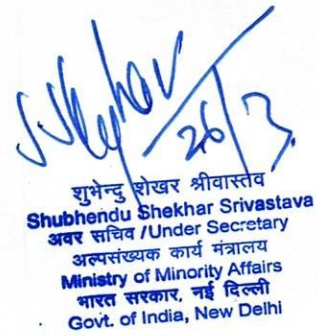 26/3
शुभेन्दु शेखर श्रीवास्तव
Shubhendu Shekhar Srivastava
अवर सचिव /Under Secretary
अल्पसंख्यक कार्य मंत्रालय
Ministry of Minority Affairs
भारत सरकार, नई दिल्ली
Govt. of India, New Delhi